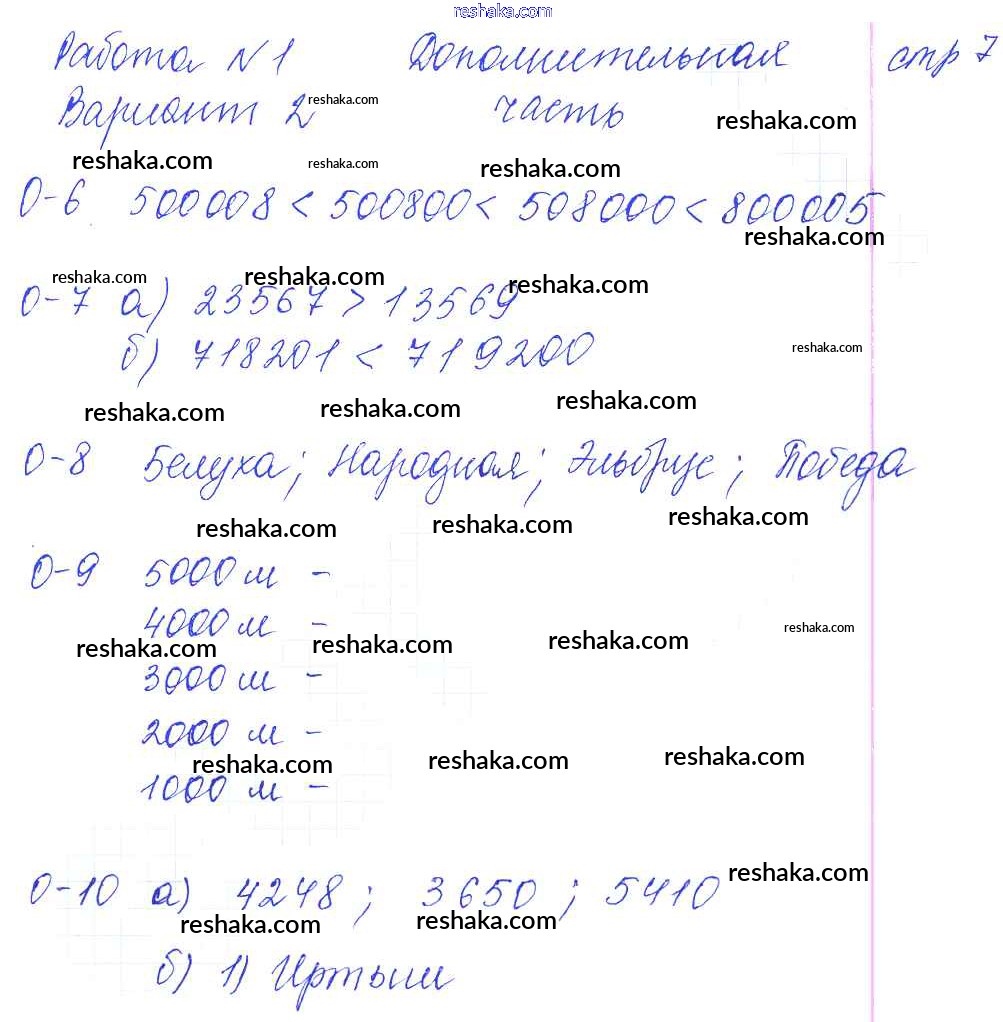 reshaka.com
Работа №1 Дополнительная стр 7
Вариант 2 reshaka.com часть reshaka.com
reshaka.com reshaka.com reshaka.com
О-6 500008 < 500800 < 508000 < 800005
reshaka.com
reshaka.com reshaka.com reshaka.com
О-7 а) 23567 > 13569
б) 718201 < 719200 reshaka.com
reshaka.com reshaka.com reshaka.com
О-8 Белуха; Народная; Эльбрус; Победа
reshaka.com reshaka.com reshaka.com
О-9 5000 м -
4000 м - reshaka.com
reshaka.com reshaka.com reshaka.com
3000 м -
2000 м -
reshaka.com reshaka.com reshaka.com
1000 м -
reshaka.com
О-10 а) 4248; 3650; 5410
reshaka.com reshaka.com
б) 1) Иртыш